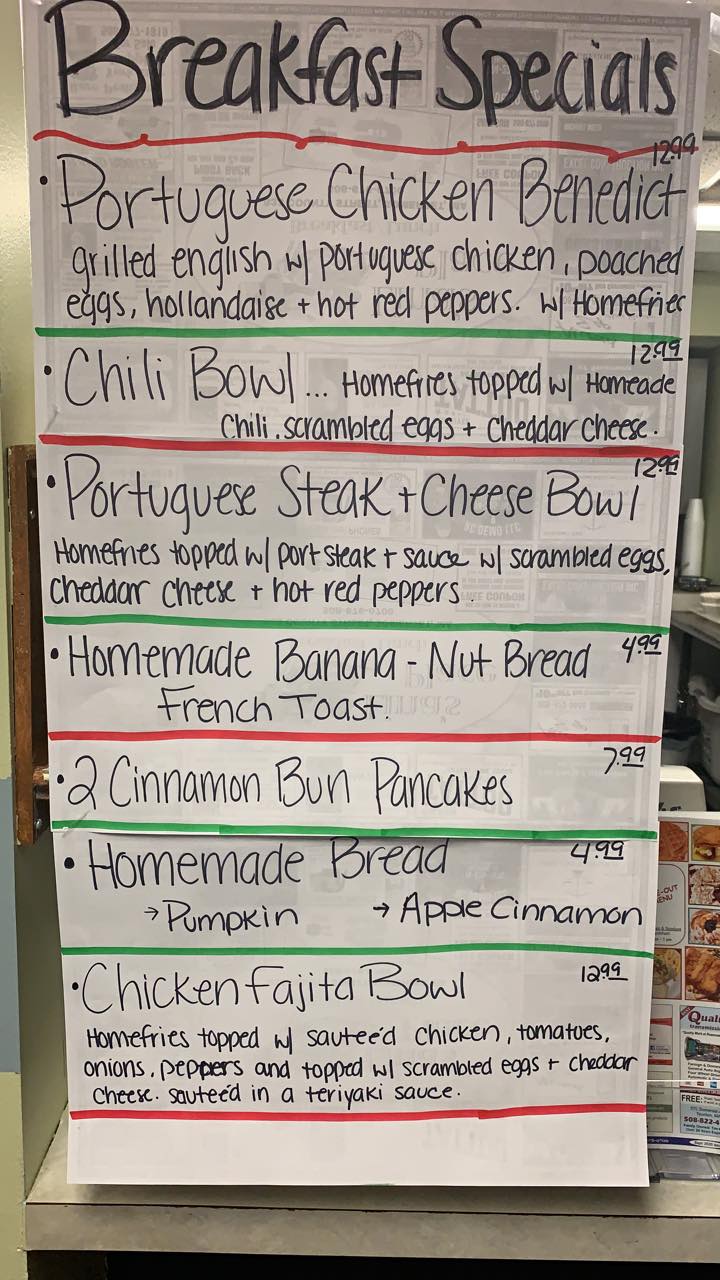 Breakfast Specials
12.99
• Portuguese Chicken Benedict
grilled english w/ portuguese chicken, poached
eggs, hollandaise + hot red peppers. w/ Homefries
12.99
• Chili Bowl... Homefries topped w/ Homeade
Chili, scrambled eggs + cheddar cheese.
12.99
• Portuguese Steak + Cheese Bowl
Homefries topped w/ port steak + sauce w/ scrambled eggs,
cheddar cheese + hot red peppers.
• Homemade Banana - Nut Bread 4.99
French Toast.
• 2 Cinnamon Bun Pancakes 7.99
• Homemade Bread 4.99
→ Pumpkin → Apple Cinnamon
• Chicken Fajita Bowl 12.99
Homefries topped w/ sauteéd chicken, tomatoes,
onions, peppers and topped w/ scrambled eggs + cheddar
cheese. sauteéd in a teriyaki sauce.
MENU
FREE: